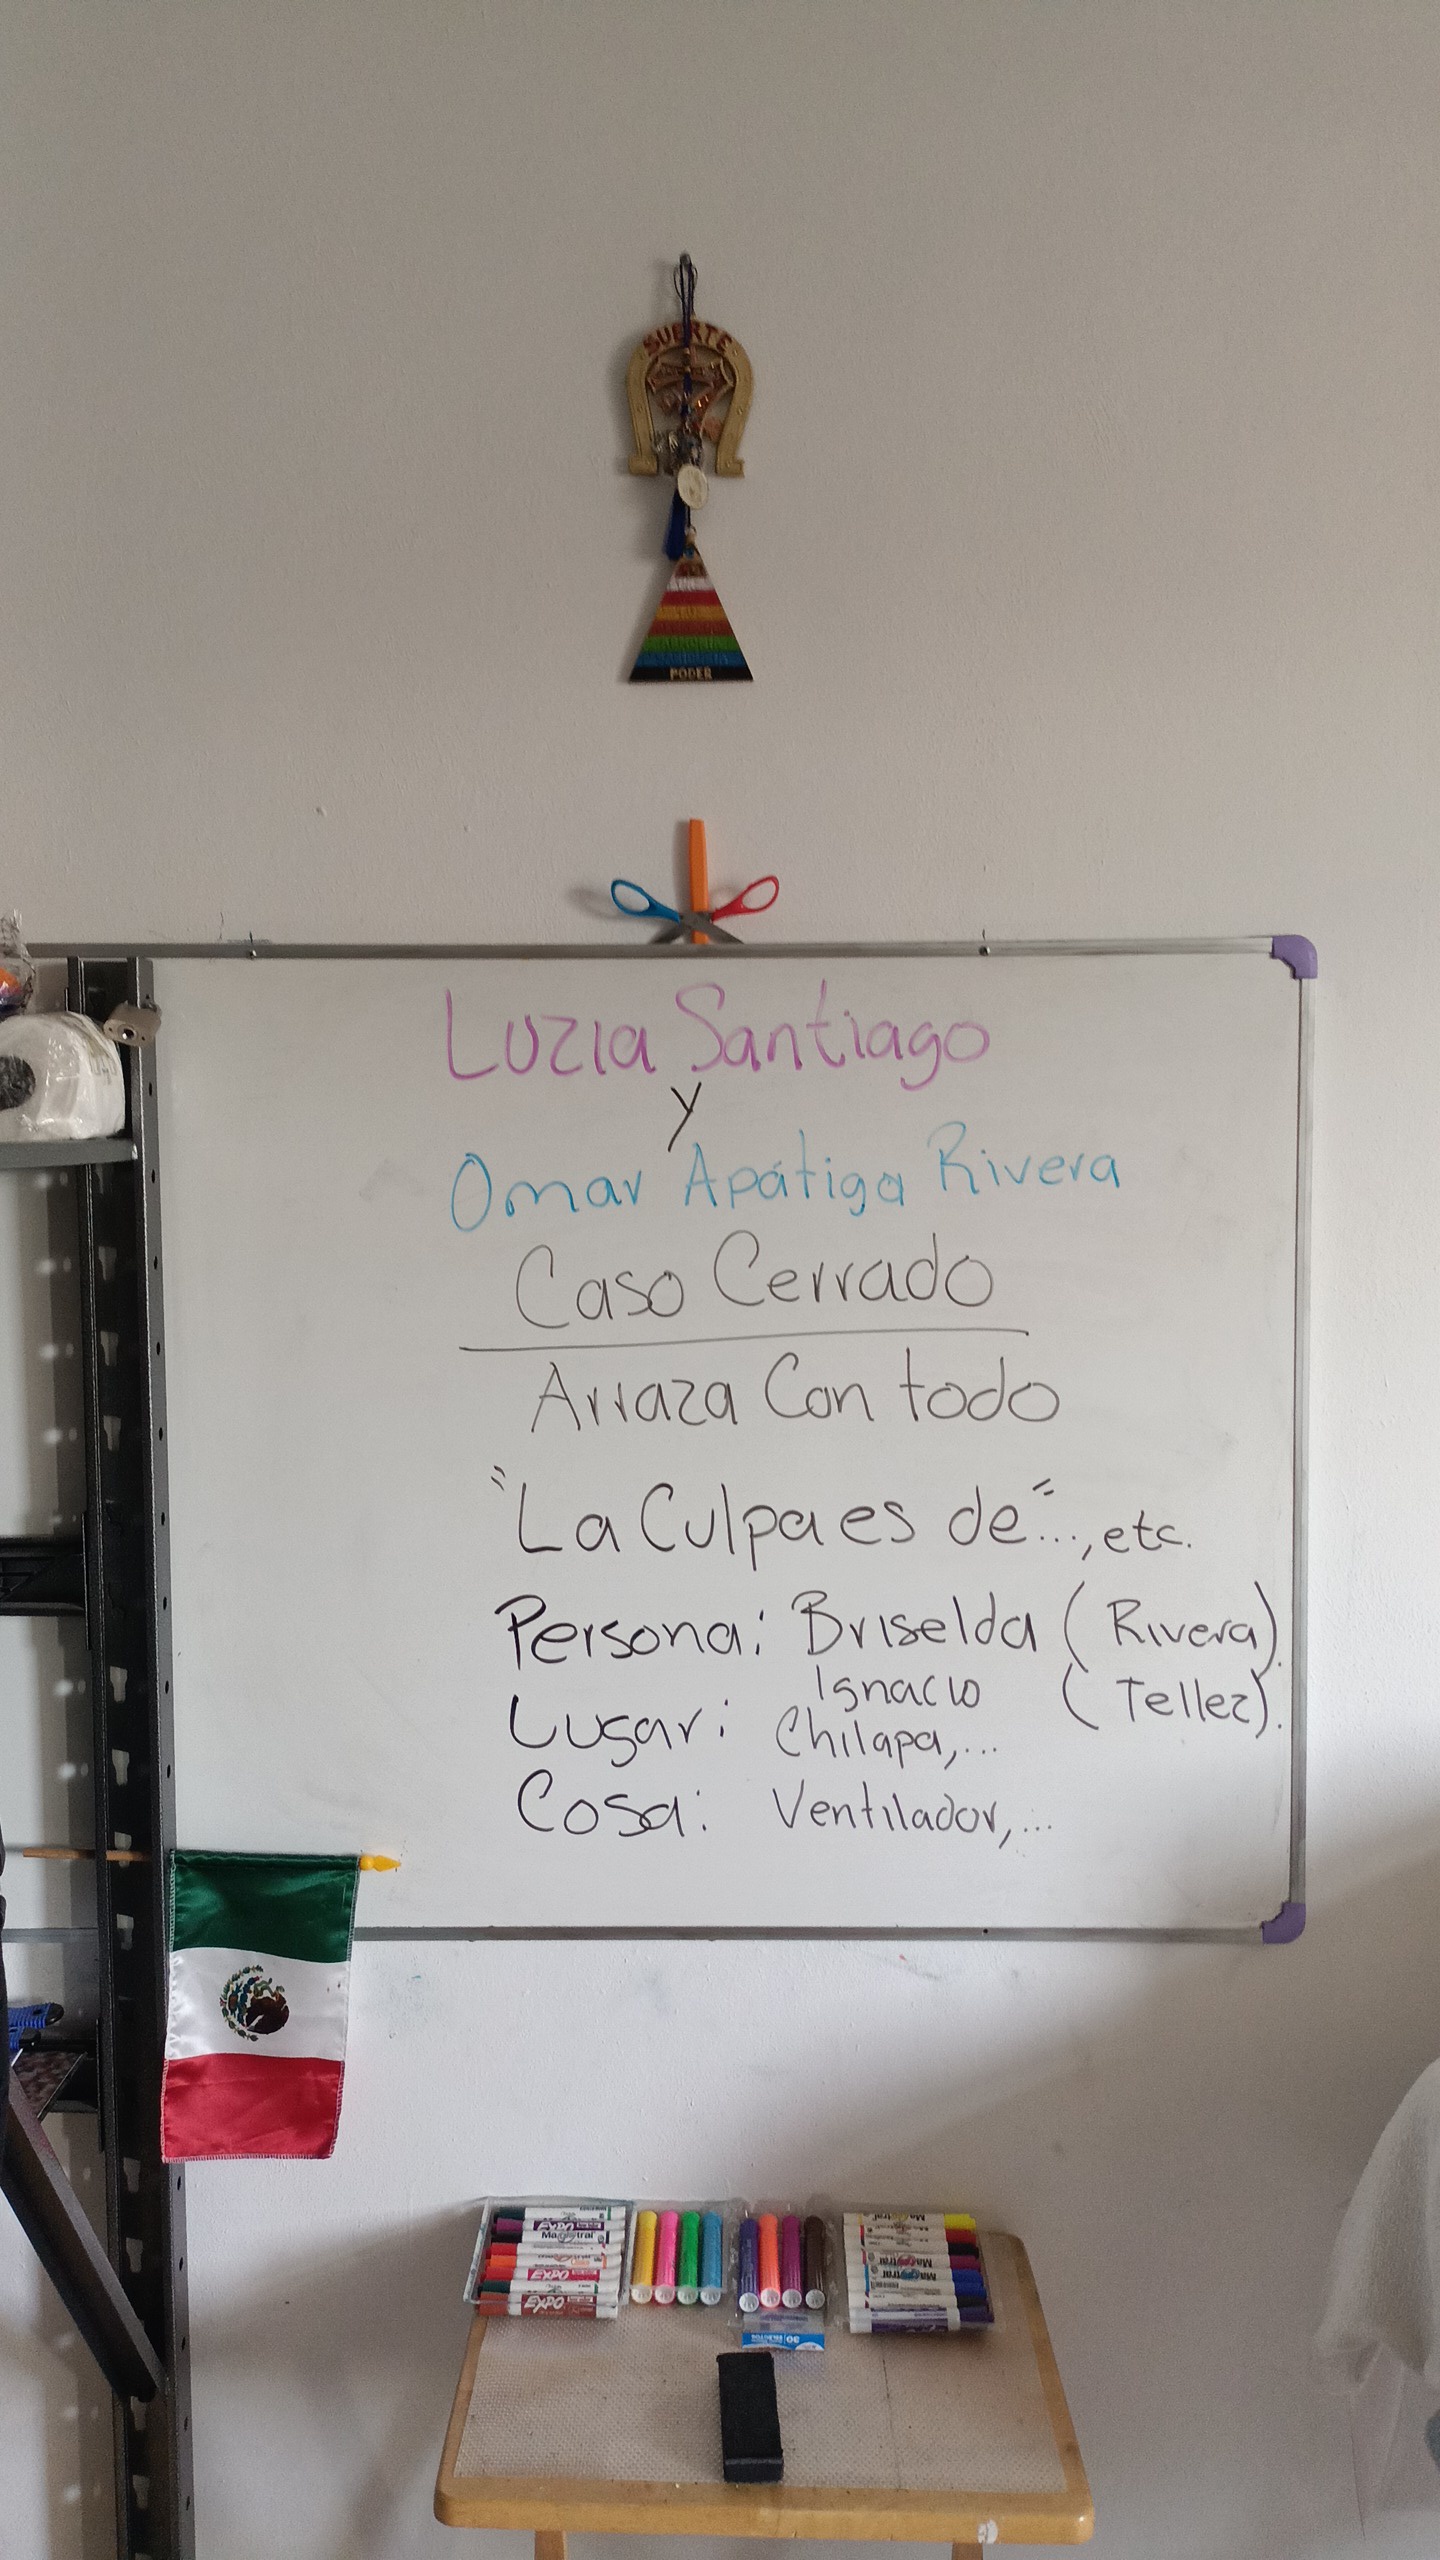 SUERTE
PODER
Luzia Santiago
y
Omar Apátiga Rivera
Caso Cerrado
Arraza Con todo
"La Culpa es de"..., etc.
Persona: Briselda (Rivera).
Ignacio (Tellez).
Lugar: Chilapa,...
Cosa: Ventilador,...
EXPO
Magistral
EXPO
EXPO
Magistral
Magistral